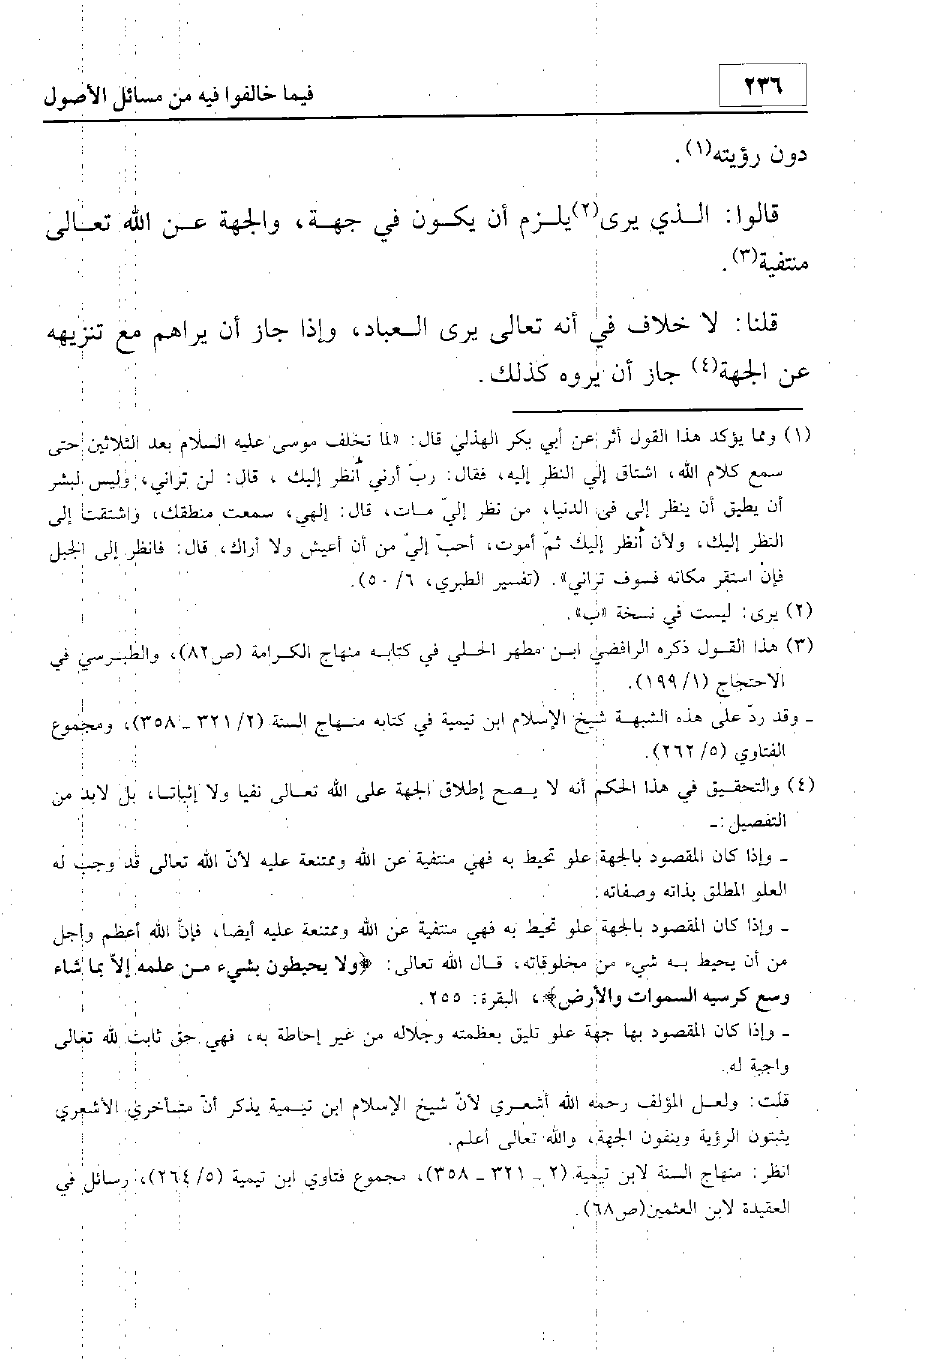 ٢٣٦
فيما خالفوا فيه من مسائل الأصول
دون رؤيته(١).
قالوا: الـذي يرى(٢)يلـزم أن يكـون في جهـة، والجهة عـن الله تعـالى
منتفية(٣).
قلنا: لا خلاف في أنه تعالى يرى العباد، وإذا جاز أن يراهم مع تنزيهه
عن الجهة(٤) جاز أن يروه كذلك.
(١) ومما يؤكد هذا القول أثر عن أبي بكر الهذلي قال: «لما تخلف موسى عليه السلام بعد الثلاثين حتى
سمع كلام الله، اشتاق إلى النظر إليه، فقال: ربّ أرني أنظر إليك ، قال: لن تراني، وليس لبشر
أن يطيق أن ينظر إلى في الدنيا، من نظر إليّ مـات، قال: إلهي، سمعت منطقك، واشتقت إلى
النظر إليك، ولأن أنظر إليك ثمّ أموت، أحبّ إليّ من أن أعيش ولا أراك، قال: فانظر إلى الجبل
فإنْ استقر مكانه فسوف تراني». (تفسير الطبري، ٦/ ٥٠).
(٢) يرى: ليست في نسخة «ب».
(٣) هذا القـول ذكره الرافضي ابـن مطهر الحـلي في كتابـه منهاج الكـرامة (ص٨٢)، والطبـرسي في
الاحتجاج (١/ ١٩٩).
ـ وقد ردّ على هذه الشبهة شيخ الإسلام ابن تيمية في كتابه منـهاج السنة (٢/ ٣٢١ ـ ٣٥٨)، ومجموع
الفتاوي (٥/ ٢٦٢).
(٤) والتحقـيق في هذا الحكم أنه لا يـصح إطلاق الجهة على الله تعـالى نفيا ولا إثباتـا، بل لابد من
التفصيل:ـ
ـ وإذا كان المقصود بالجهة علو تحيط به فهي منتفية عن الله وممتنعة عليه لأنّ الله تعالى قد وجب له
العلو المطلق بذاته وصفاته.
ـ وإذا كان المقصود بالجهة علو تحيط به فهي منتفية عن الله وممتنعة عليه أيضا، فإنّ الله أعظم وأجل
من أن يحيط بـه شيء من مخلوقاته، قـال الله تعالى: ﴿ولا يحيطون بشيء مـن علمه إلاّ بما شاء
وسع كرسيه السموات والأرض﴾، البقرة: ٢٥٥.
ـ وإذا كان المقصود بها جهة علو تليق بعظمته وجلاله من غير إحاطة به، فهي حق ثابت لله تعالى
واجبة له.
قلت: ولعـل المؤلف رحمه الله أشعـري لأنّ شيخ الإسلام ابن تيـمية يذكر أنّ متـأخري الأشعري
يثبتون الرؤية وينفون الجهة، والله تعالى أعلم.
انظر: منهاج السنة لابن تيمية (٢ ـ ٣٢١ ـ ٣٥٨)، مجموع فتاوي ابن تيمية (٥/ ٢٦٤)، رسائل في
العقيدة لابن العثمين(ص٦٨).